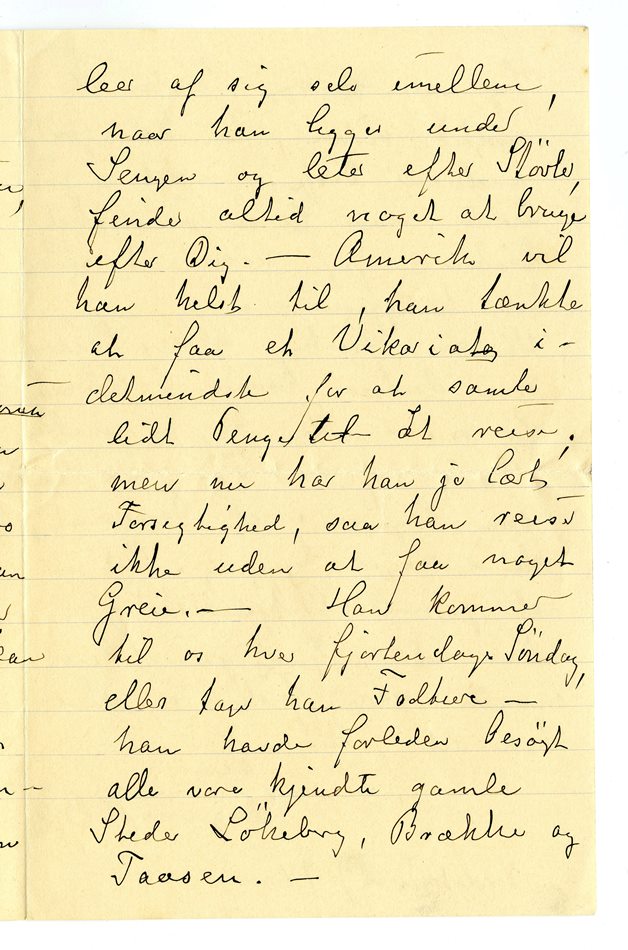 leer af sig selv imellem,
naar han ligger under
Sengen og leter efter Støvler,
finder altid noget at bruge
efter Dig. — Amerika vil
han helst til, han tænkte
at faa et Vikariat i-
detmindste for at samle
lidt Penge at reise,
men nu har han jo lært
Forsigtighed, saa han reiser
ikke uden at faa noget
Greie. — Han kommer
til os hver fjortendags Søndag,
eller tager han Fodture —
han havde forleden besøgt
alle vore kjendte gamle
Steder Løkeberg, Brække og
Taasen. —